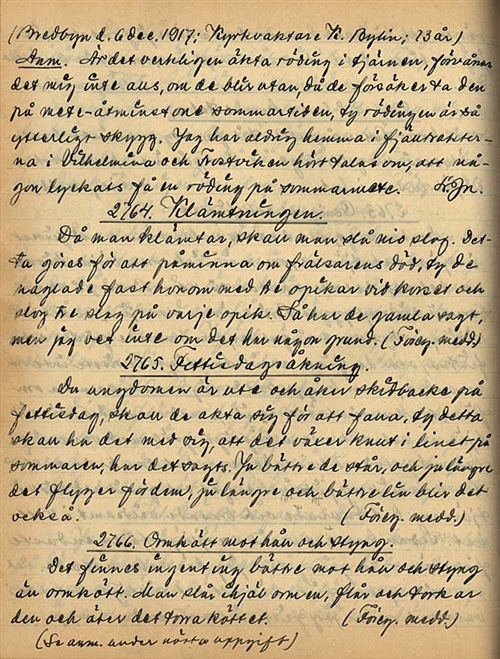 (Bredbyn d. 6 dec. 1917; Kyrkvaktare K. Bylin; 73 år)
Anm. Är det verkligen äkta röding i tjärnen, förvånar
det mig inte alls, om de blir utan, då de försöker ta den
på mete - åtminstone sommartiden, ty rödingen är så
ytterligt skygg. Jag har aldrig hemma i fjälltrakter-
na i Vilhelmina och Frostviken hört talas om, att nå-
gon lyckats få en röding på sommarmete. K.Jn.
2764. Klämtningen.
Då man klämtar, skall man slå nio slag. Det-
ta göres för att påminna om frälsarens död, ty de
naglade fast honom med tre spikar vid korset och
slog tre slag på varje spik. Så har de gamla sagt,
men jag vet inte om det har någon grund. (Föreg. medd.)
2765. Fettisdagsåkning.
Du ungdomen är ute och åker skidbacke på
fettisdag, skall de akta sig för att falla, ty detta
skall ha det med sig, att det växer knut i linet på
sommaren, har det sagts. Ju bättre de står, och ju längre
det flyger för dem, ju längre och bättre lin blir det
också. (Föreg. medd.)
2766. Ormkött mot håll och styng.
Det finnes ingenting bättre mot håll och styng
än ormkött. Man slår ihjäl ormen, flår och torkar
den och äter det torra köttet. (Föreg. medd.)
(Se anm. under nästa uppgift)